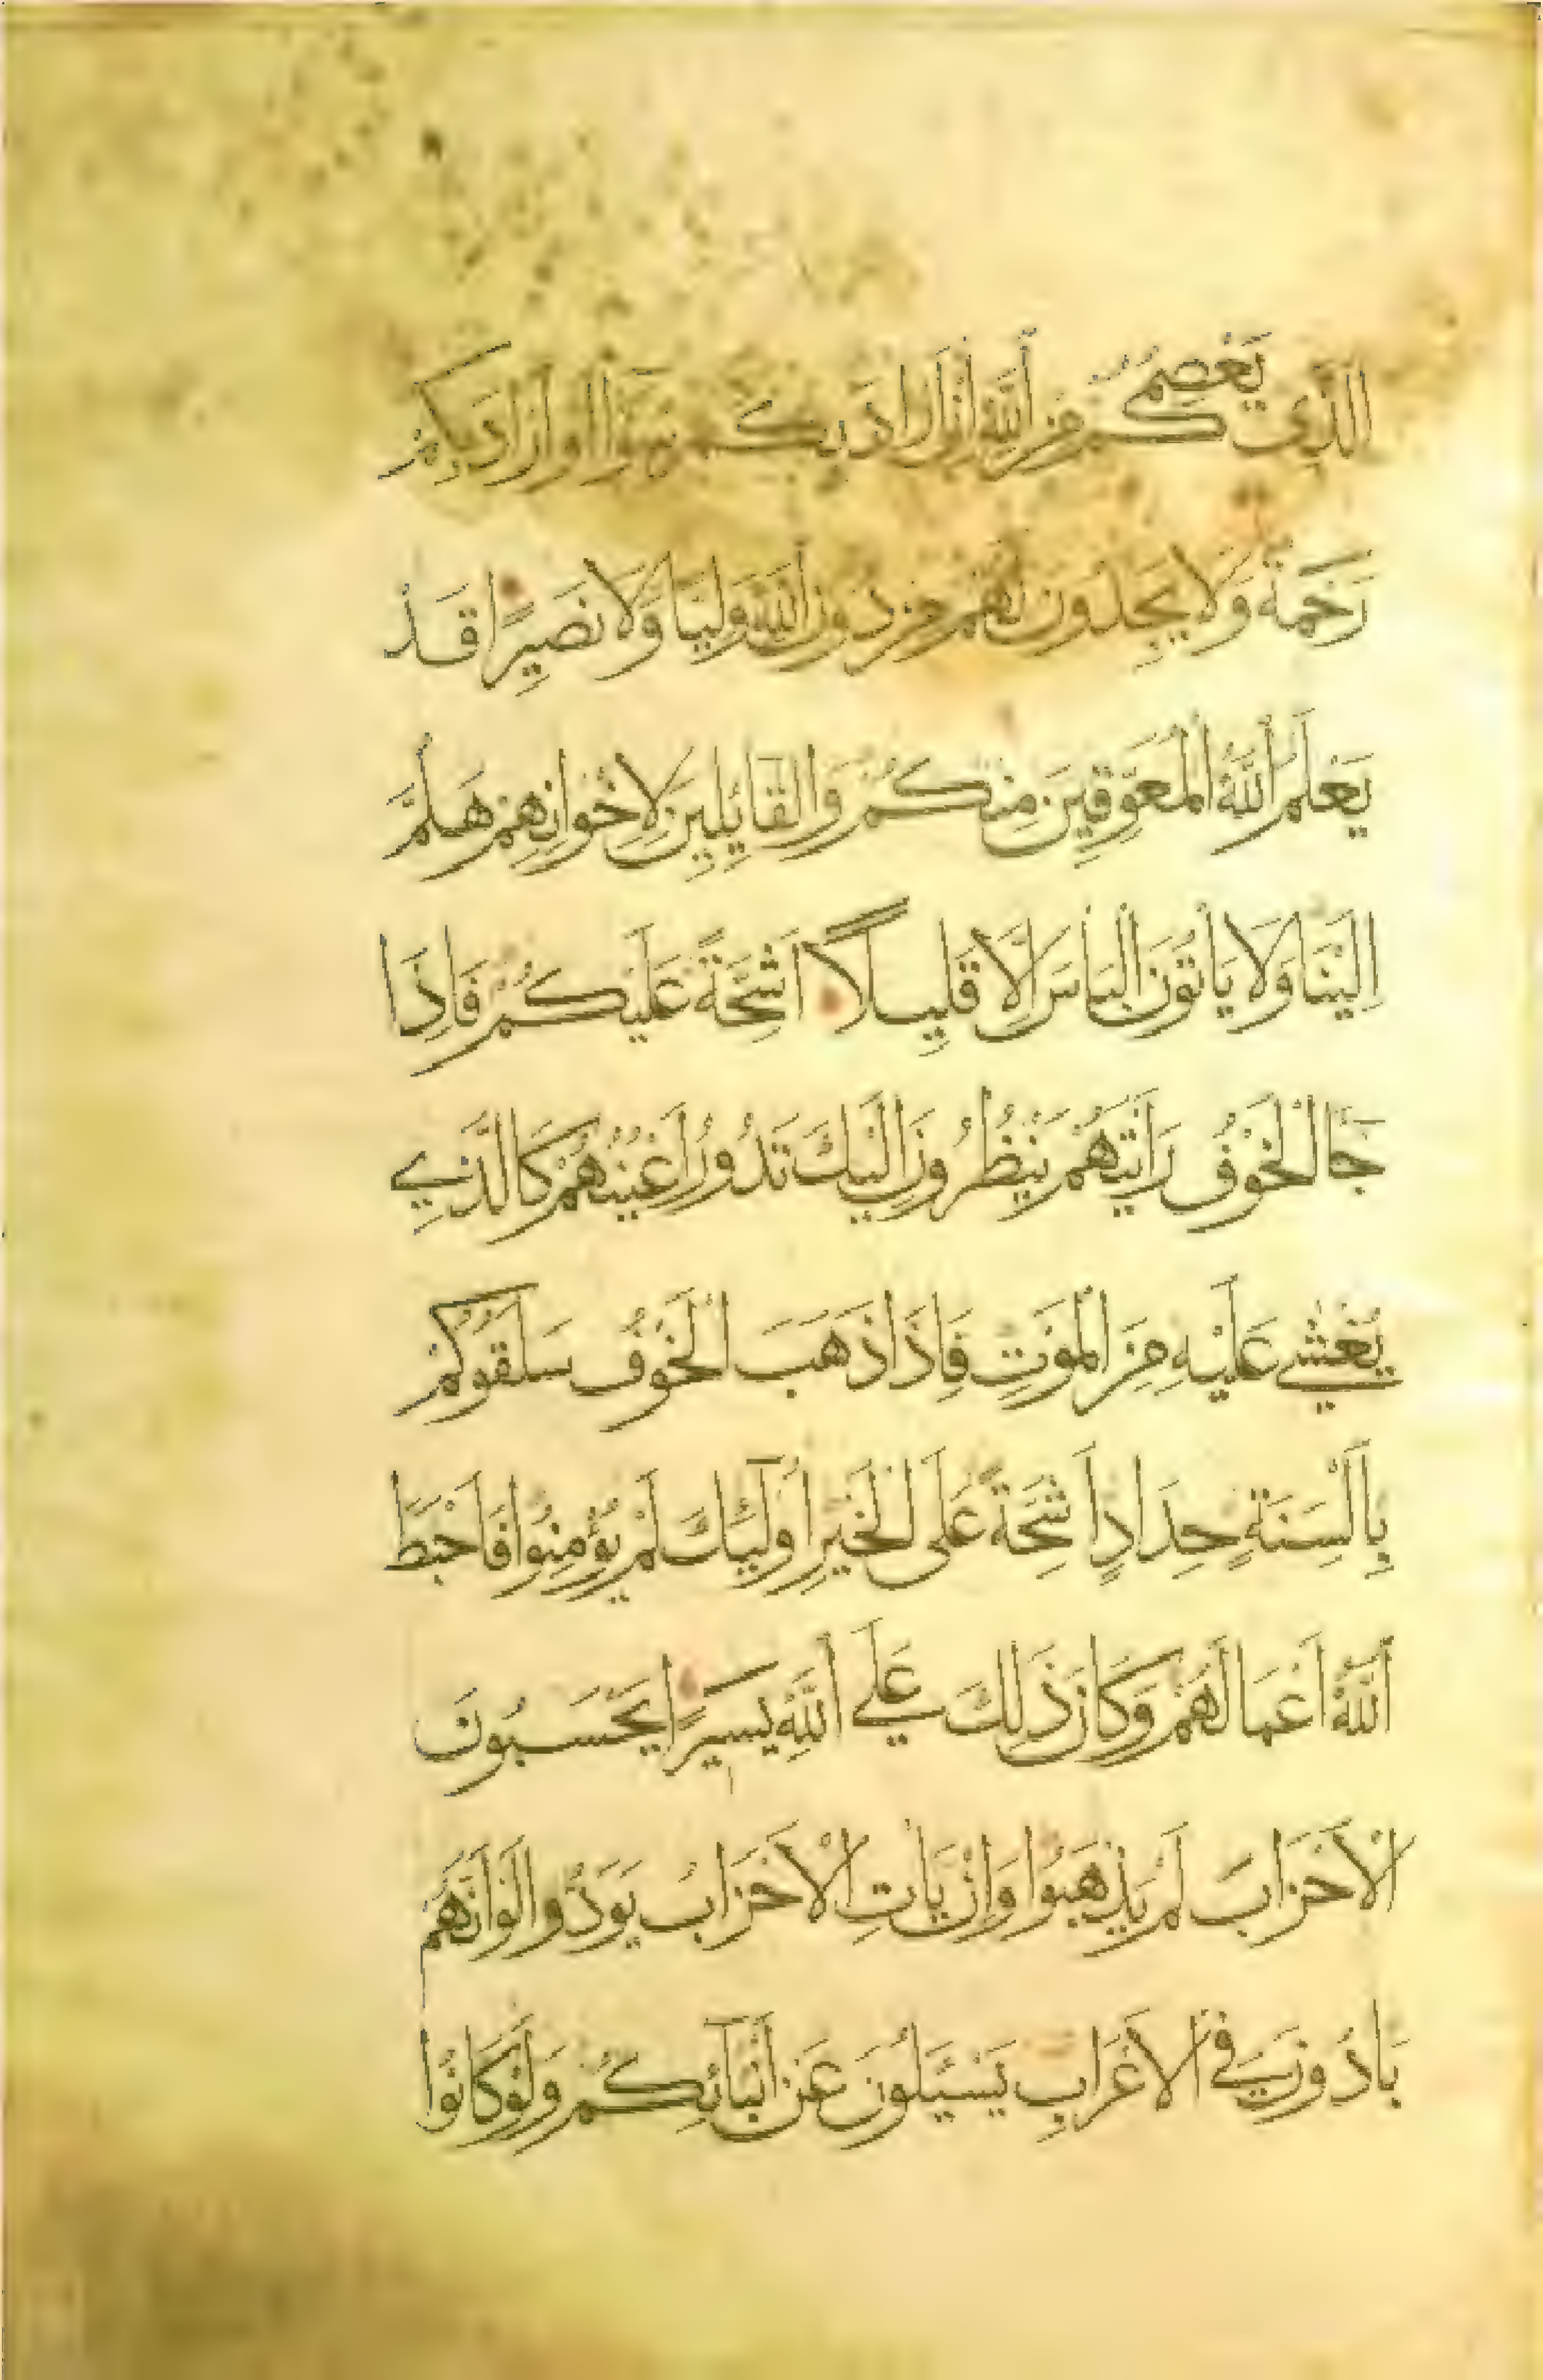 الَّذِي يَعْصِمُكُمْ مِنَ اللَّهِ إِنْ أَرَادَ بِكُمْ سُوًۤا أَوْ أَرَادَ بِكُمْ
رَحْمَةً وَلَا يَجِدُونَ لَهُمْ مِنْ دُونِ اللَّهِ وَلِيًّا وَلَا نَصِيرًا قَدْ
يَعْلَمُ اللَّهُ الْمُعَوِّقِينَ مِنْكُمْ وَالْقَآئِلِينَ لِإِخْوَانِهِمْ هَلُمَّ
إِلَيْنَا وَلَا يَأْتُونَ الْبَأْسَ إِلَّا قَلِيلًا أَشِحَّةً عَلَيْكُمْ فَإِذَا
جَآ الْخَوْفُ رَأَيْتَهُمْ يَنْظُرُونَ إِلَيْكَ تَدُورُ أَعْيُنُهُمْ كَالَّذِي
يُغْشَى عَلَيْهِ مِنَ الْمَوْتِ فَإِذَا ذَهَبَ الْخَوْفُ سَلَقُوكُمْ
بِأَلْسِنَةٍ حِدَادٍ أَشِحَّةً عَلَى الْخَيْرِ أُولَٓئِكَ لَمْ يُؤْمِنُوا فَأَحْبَطَ
اللَّهُ أَعْمَالَهُمْ وَكَانَ ذَلِكَ عَلَى اللَّهِ يَسِيرًا يَحْسَبُونَ
الْأَحْزَابَ لَمْ يَذْهَبُوا وَإِنْ يَأْتِ الْأَحْزَابُ يَوَدُّوا لَوْ أَنَّهُمْ
بَادُونَ فِي الْأَعْرَابِ يَسْئَلُونَ عَنْ أَنْبَآئِكُمْ وَلَوْ كَانُوا